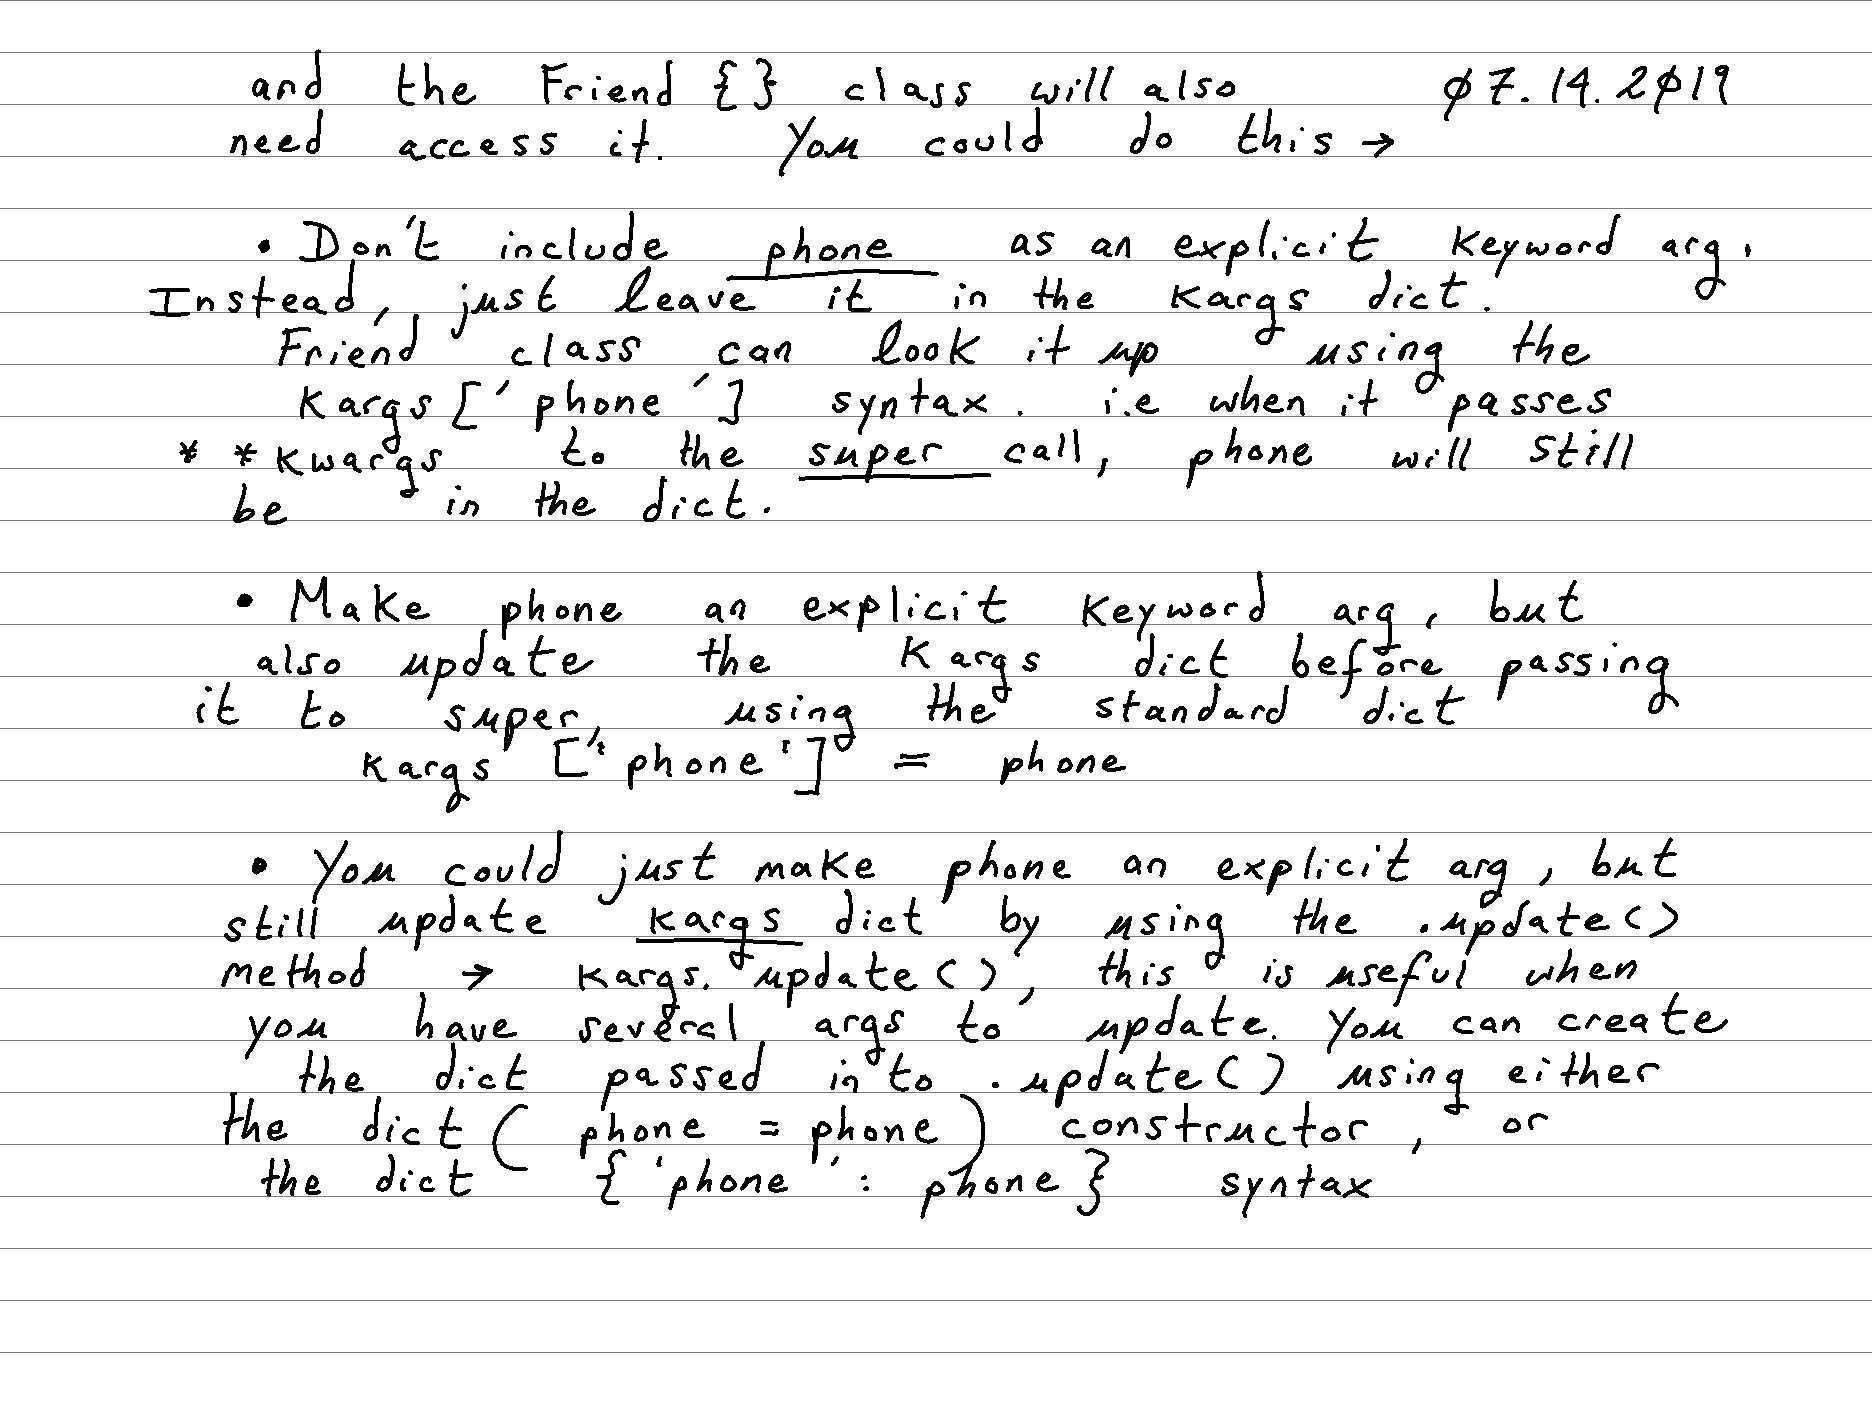 and the Friend {} class will also 07.14.2019
need access it. You could do this →
• Don't include phone as an explicit keyword arg.
Instead, just leave it in the kargs dict.
Friend class can look it up using the
kargs['phone'] syntax. i.e when it passes
**kwargs to the super call, phone will still
be in the dict.
• Make phone an explicit keyword arg, but
also update the kargs dict before passing
it to super, using the standard dict
kargs ['phone'] = phone
• You could just make phone an explicit arg, but
still update kargs dict by using the .update()
method → kargs.update(), this is useful when
you have several args to update. You can create
the dict passed into .update() using either
the dict( phone = phone) constructor, or
the dict {'phone' : phone} syntax